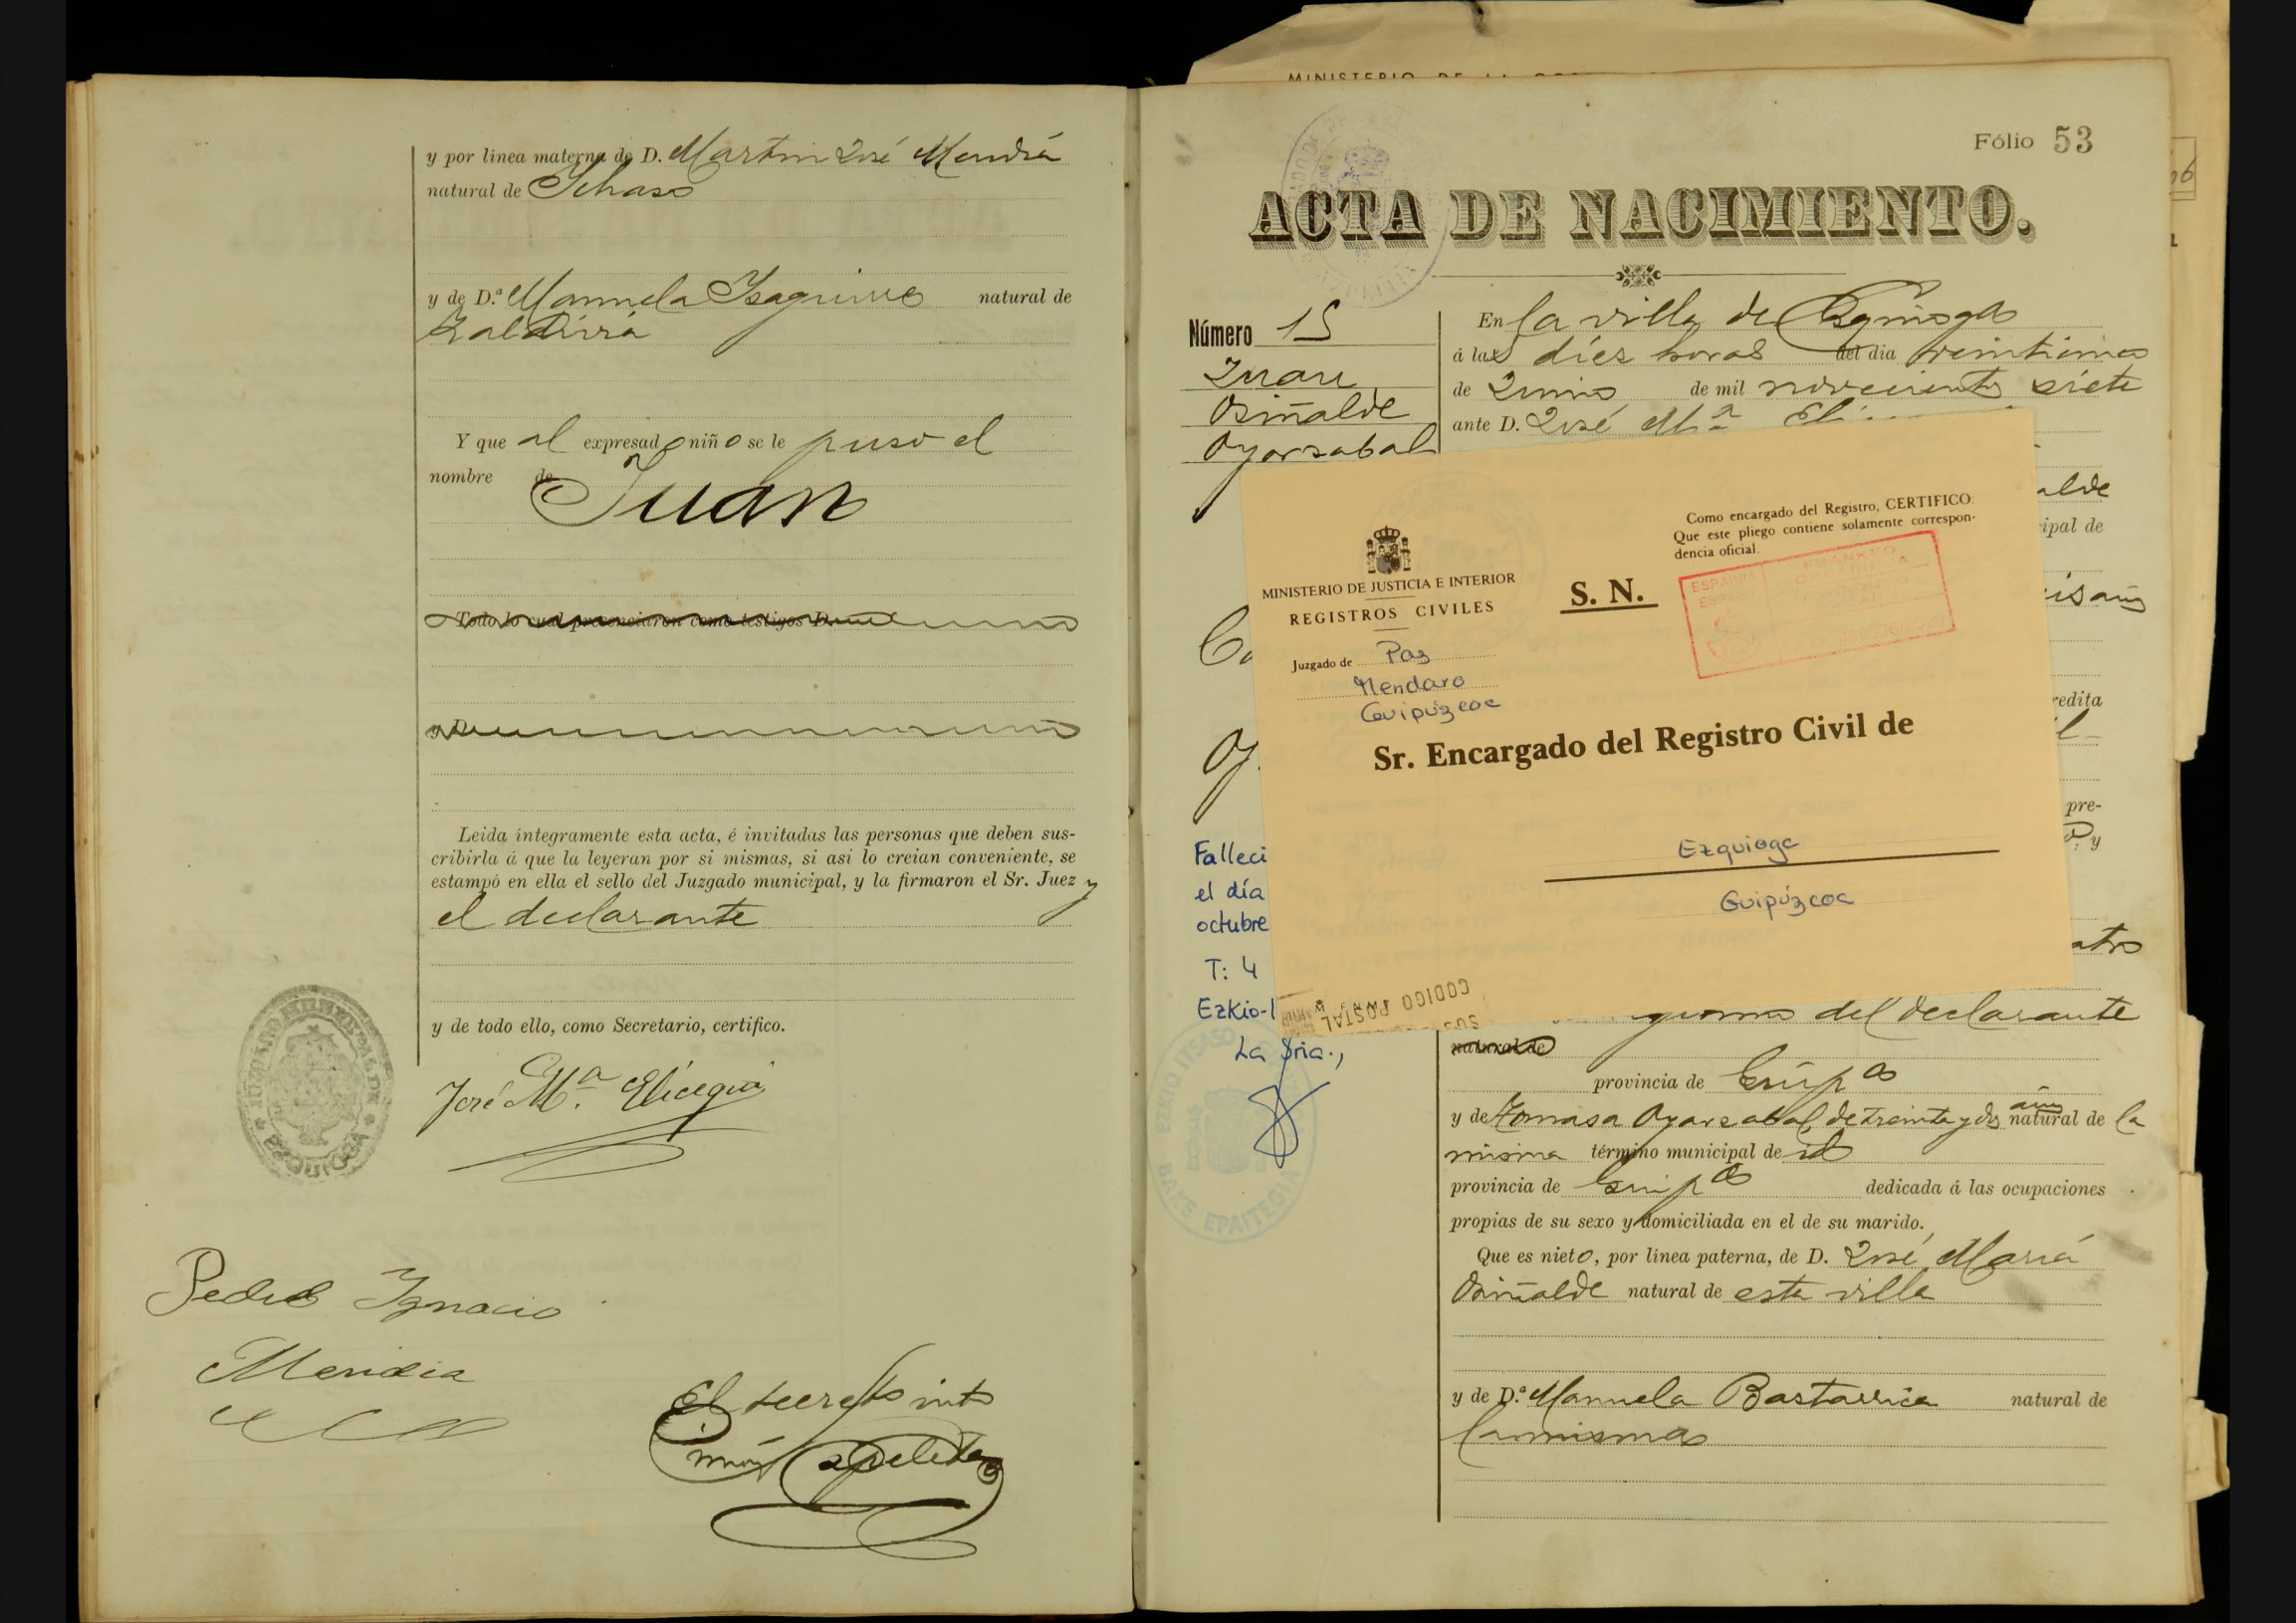 y por línea materna de D. Martin José Mendia
natural de Ichaso
y de D.ª Manuela Ysaguirre natural de
Zaldivia
Y que al expresado niño se le puso el
nombre de
Juan
Todo lo cual presenciaron como testigos D.
Leida íntegramente esta acta, é invitadas las personas que deben sus-
cribirla á que la leyeran por si mismas, si asi lo creian conveniente, se
estampó en ella el sello del Juzgado municipal, y la firmaron el Sr. Juez y
el declarante
y de todo ello, como Secretario, certifico.
JUZGADO MUNICIPAL DE
EZQUIOGA
José M.ª Elicegui
Pedro Ygnacio
Mendia
El secret.º int.º
MINISTERIO DE LA
Fólio 53
ACTA DE NACIMIENTO.
Número 15
Juan
Osiñalde
Oyarzabal
En la villa de Ezquioga
á las diez horas del dia veinticinco
de Junio de mil novecientos siete
ante D. José M.ª
alde
cipal de
redita
pre-
D. y
atro
Falleci
el día
octubre
T: 4
Ezkio-I
La Sria.,
EZKIO ITSASO
BAKE EPAITEGIA
Como encargado del Registro, CERTIFICO:
Que este pliego contiene solamente correspon-
dencia oficial.
MINISTERIO DE JUSTICIA E INTERIOR
REGISTROS CIVILES
S. N.
Juzgado de Paz
Mendaro
Guipúzcoa
Sr. Encargado del Registro Civil de
Ezquioga
Guipúzcoa
CODIGO POSTAL
del declarante
natural de
provincia de Guip.ª
y de Tomasa Oyarzabal, de treinta y dos años natural de la
misma término municipal de id
provincia de Guip.ª dedicada á las ocupaciones
propias de su sexo y domiciliada en el de su marido.
Que es nieto, por línea paterna, de D. José María
Osiñalde natural de esta villa
y de D.ª Manuela Bastarrica natural de
la misma